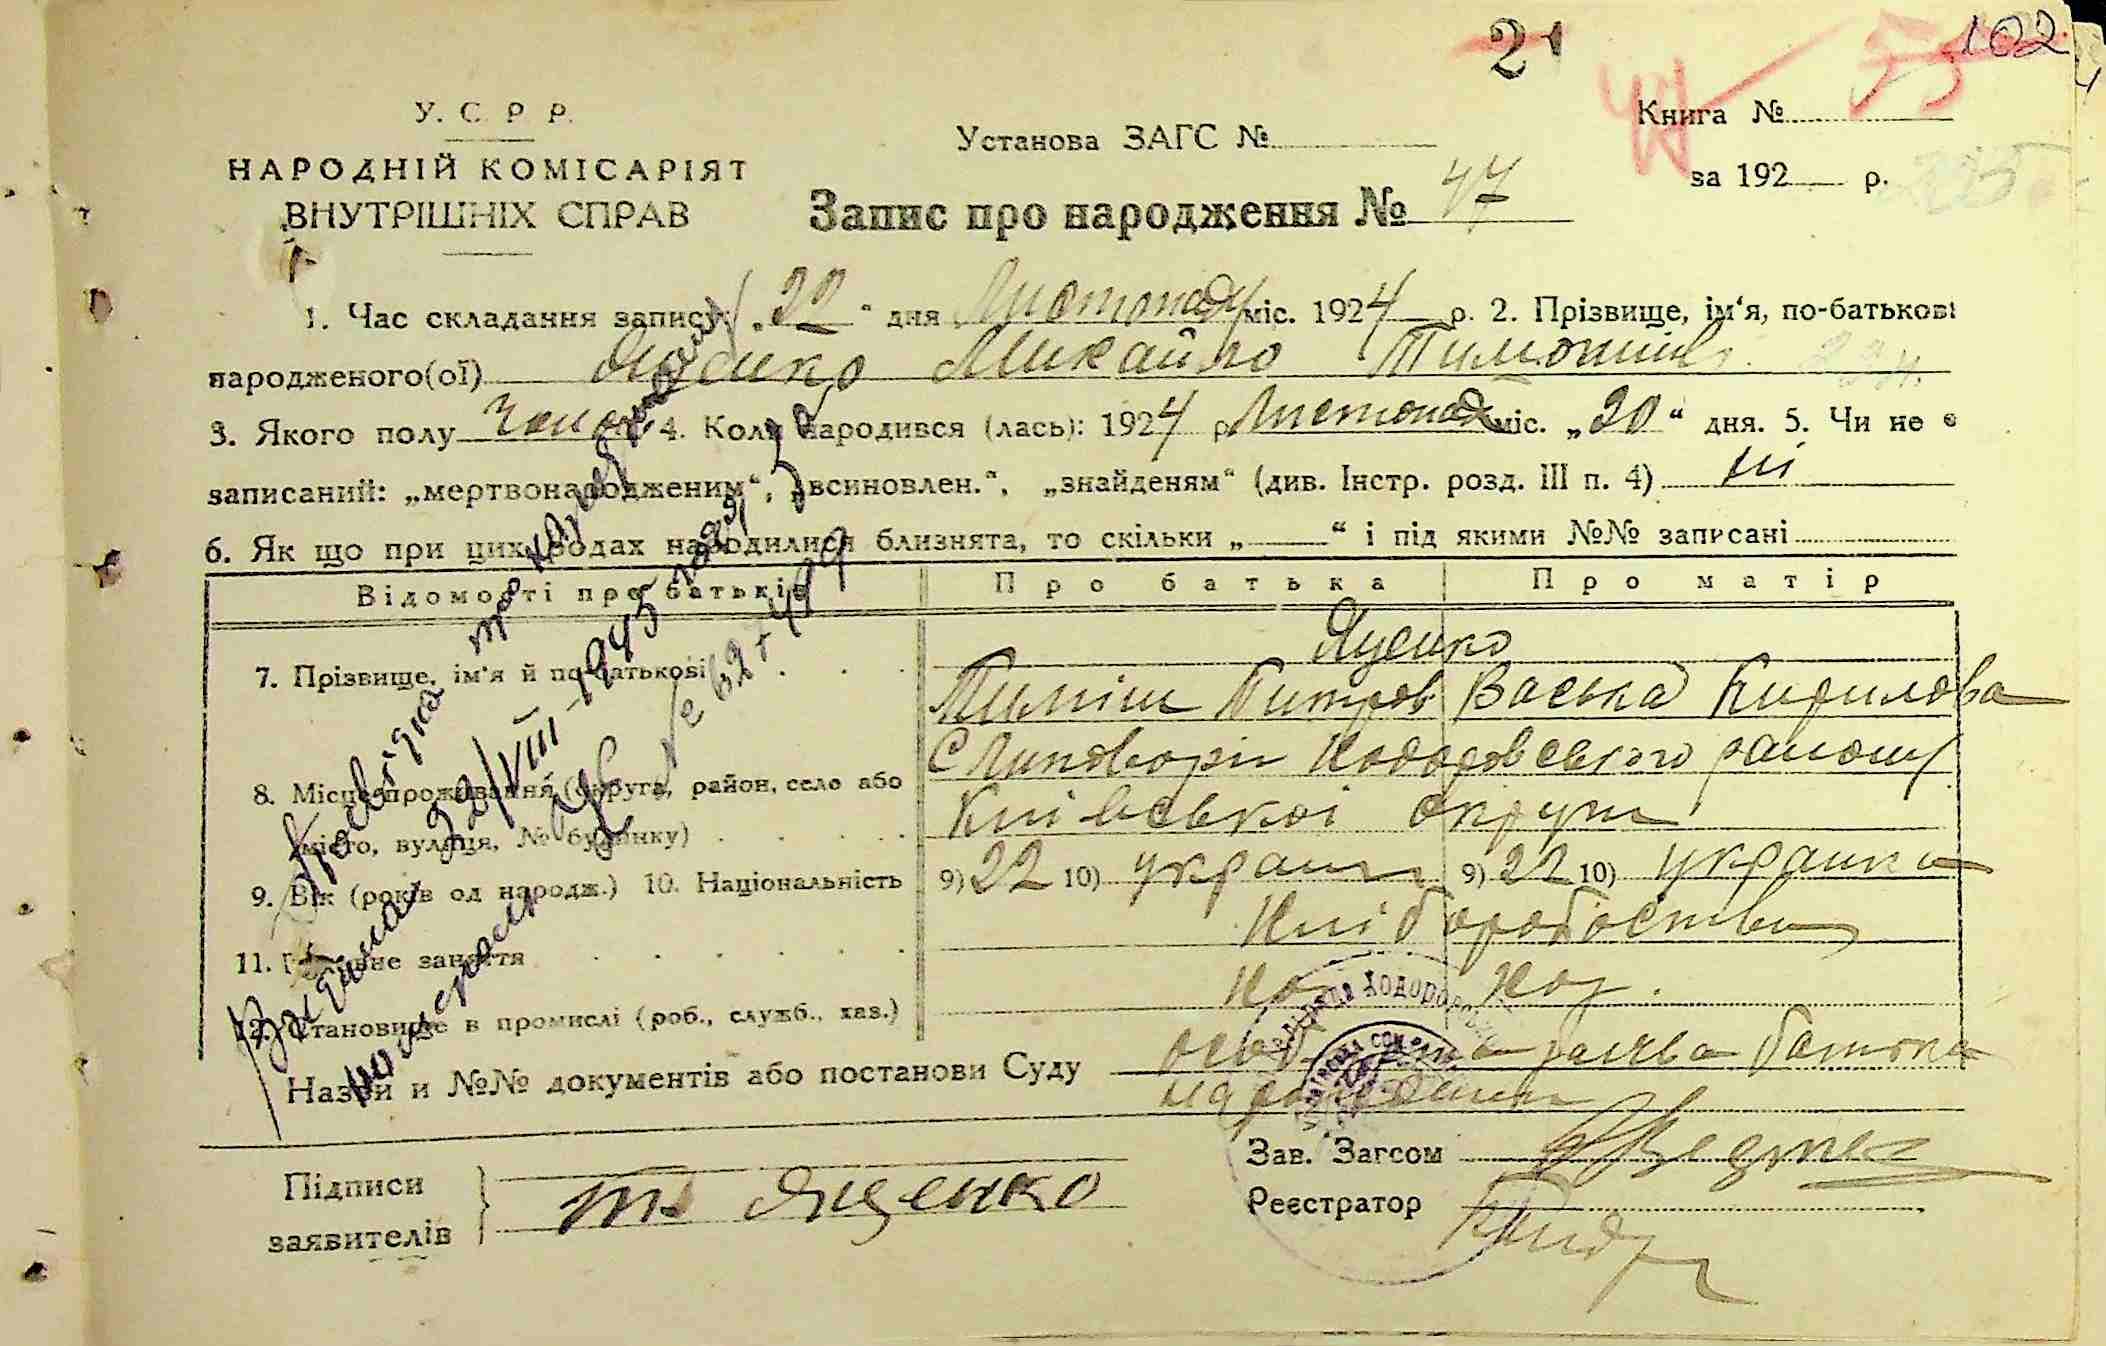 21 47 55 102
У. С. Р. Р.
НАРОДНІЙ КОМІСАРІЯТ
ВНУТРІШНІХ СПРАВ
Установа ЗАГС №
Книга №
за 192 р.
Запис про народження № 47
1. Час складання запису: „22“ дня Листопаду міс. 1924 р. 2. Прізвище, ім‘я, по-батькові
народженого(ої) Яценко Михайло Тимошів
3. Якого полу чолов. 4. Коли народився (лась): 1924 р. Листопад міс. „20“ дня. 5. Чи не є
записаний: „мертвонародженим“, „всиновлен.“, „знайденям“ (див. Інстр. розд. III п. 4) ні
6. Як що при цих родах народилися близнята, то скільки „ “ і під якими №№ записані
Відомості про батьків Про батька Про матір
Яценко
7. Прізвище, ім‘я й по-батькові Тиміш Питров Васька Кирилова
с Липовци Ходоровського району
8. Місце проживання (округа, район, село або
місто, вулиця, № будинку) Київської округи
9. Вік (років од народж.) 10. Національність 9) 22 10) украин 9) 22 10) украинка
11. Головне заняття Хліборобство
12. Становище в промислі (роб., служб., хаз.) хоз хоз.
Назви и №№ документів або постанови Суду заява батька
Підписи
заявителів Яценко
Зав. Загсом
Реєстратор
22/VIII-1945